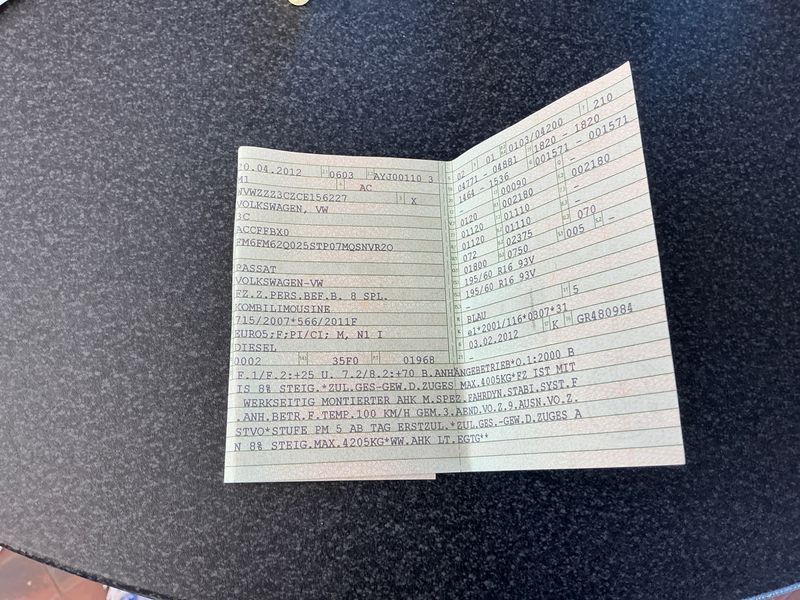 20.04.2012 0603 AYJ00110 3
M1 AC
WVWZZZ3CZCE156227 X
VOLKSWAGEN, VW
3C
ACCFFBX0
FM6FM62Q025STP07MQSNVR2O
PASSAT
VOLKSWAGEN-VW
FZ.Z.PERS.BEF.B. 8 SPL.
KOMBILIMOUSINE
715/2007*566/2011F
EURO5;F;PI/CI; M, N1 I
DIESEL
0002 35F0 01968
02 01 0103/04200 210
04771 - 04881 1820 - 1820
1464 - 1536 001571 - 001571
- 00090 -
0120 002180 002180
01120 01110 -
01120 01110 -
072 02375 070
01800 0750 005 -
195/60 R16 93V
195/60 R16 93V
BLAU 5
e1*2001/116*0307*31
03.02.2012 K GR480984
-
F.1/F.2:+25 U. 7.2/8.2:+70 B.ANHÄNGEBETRIEB*O.1:2000 B
IS 8% STEIG.*ZUL.GES-GEW.D.ZUGES MAX.4005KG*FZ IST MIT
WERKSEITIG MONTIERTER AHK M.SPEZ.FAHRDYN.STABI.SYST.F
.ANH.BETR.F.TEMP.100 KM/H GEM.3.AEND.VO.Z.9.AUSN.VO.Z.
STVO*STUFE PM 5 AB TAG ERSTZUL.*ZUL.GES.-GEW.D.ZUGES A
N 8% STEIG.MAX.4205KG*WW.AHK LT.EGTG**